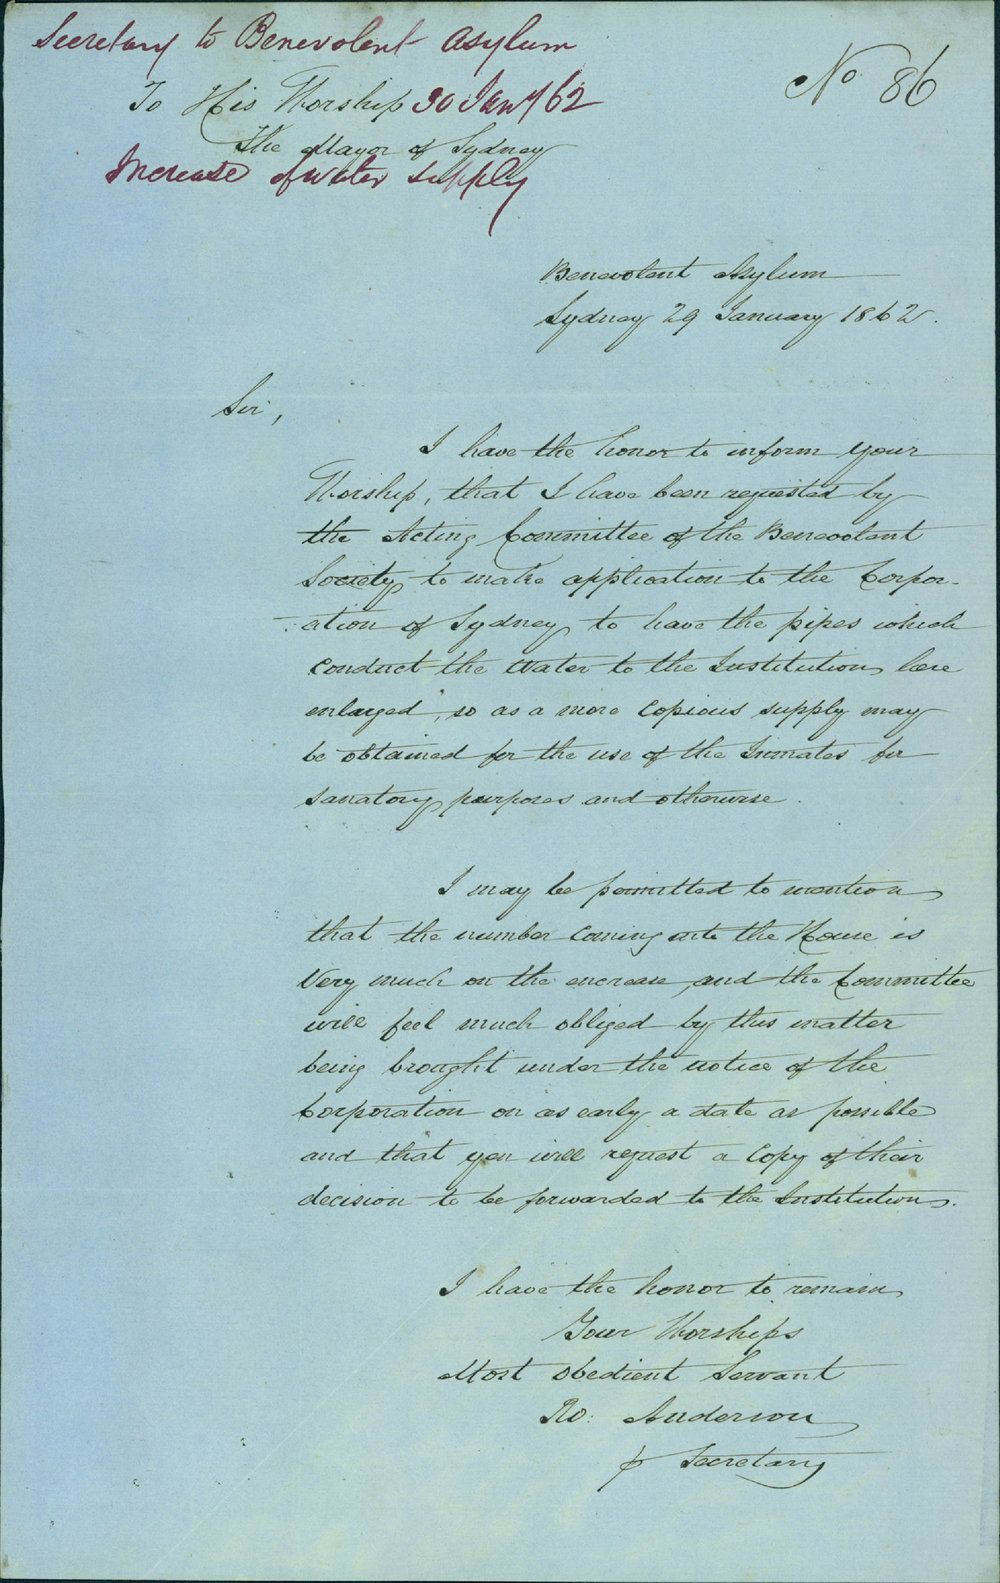 Secretary to Benevolent Asylum
To His Worship 30 Jany/62
No 86
The Mayor of Sydney
Increase of water supply
Benevolent Asylum
Sydney 29 January 1862.
Sir,
I have the honor to inform your
Worship, that I have been requested by
the Acting Committee of the Benevolent
Society to make application to the Corpor-
ation of Sydney to have the pipes which
conduct the Water to the Institution here
enlarged, so as a more copious supply may
be obtained for the use of the Inmates for
sanatory purposes and otherwise.
I may be permitted to mention
that the number coming into the House is
very much on the encrease, and the Committee
will feel much obliged by this matter
being brought under the notice of the
Corporation on as early a date as possible
and that you will request a Copy of their
decision to be forwarded to the Institution.
I have the honor to remain
Your Worships
Most obedient Servant
Ro: Anderson
p Secretary